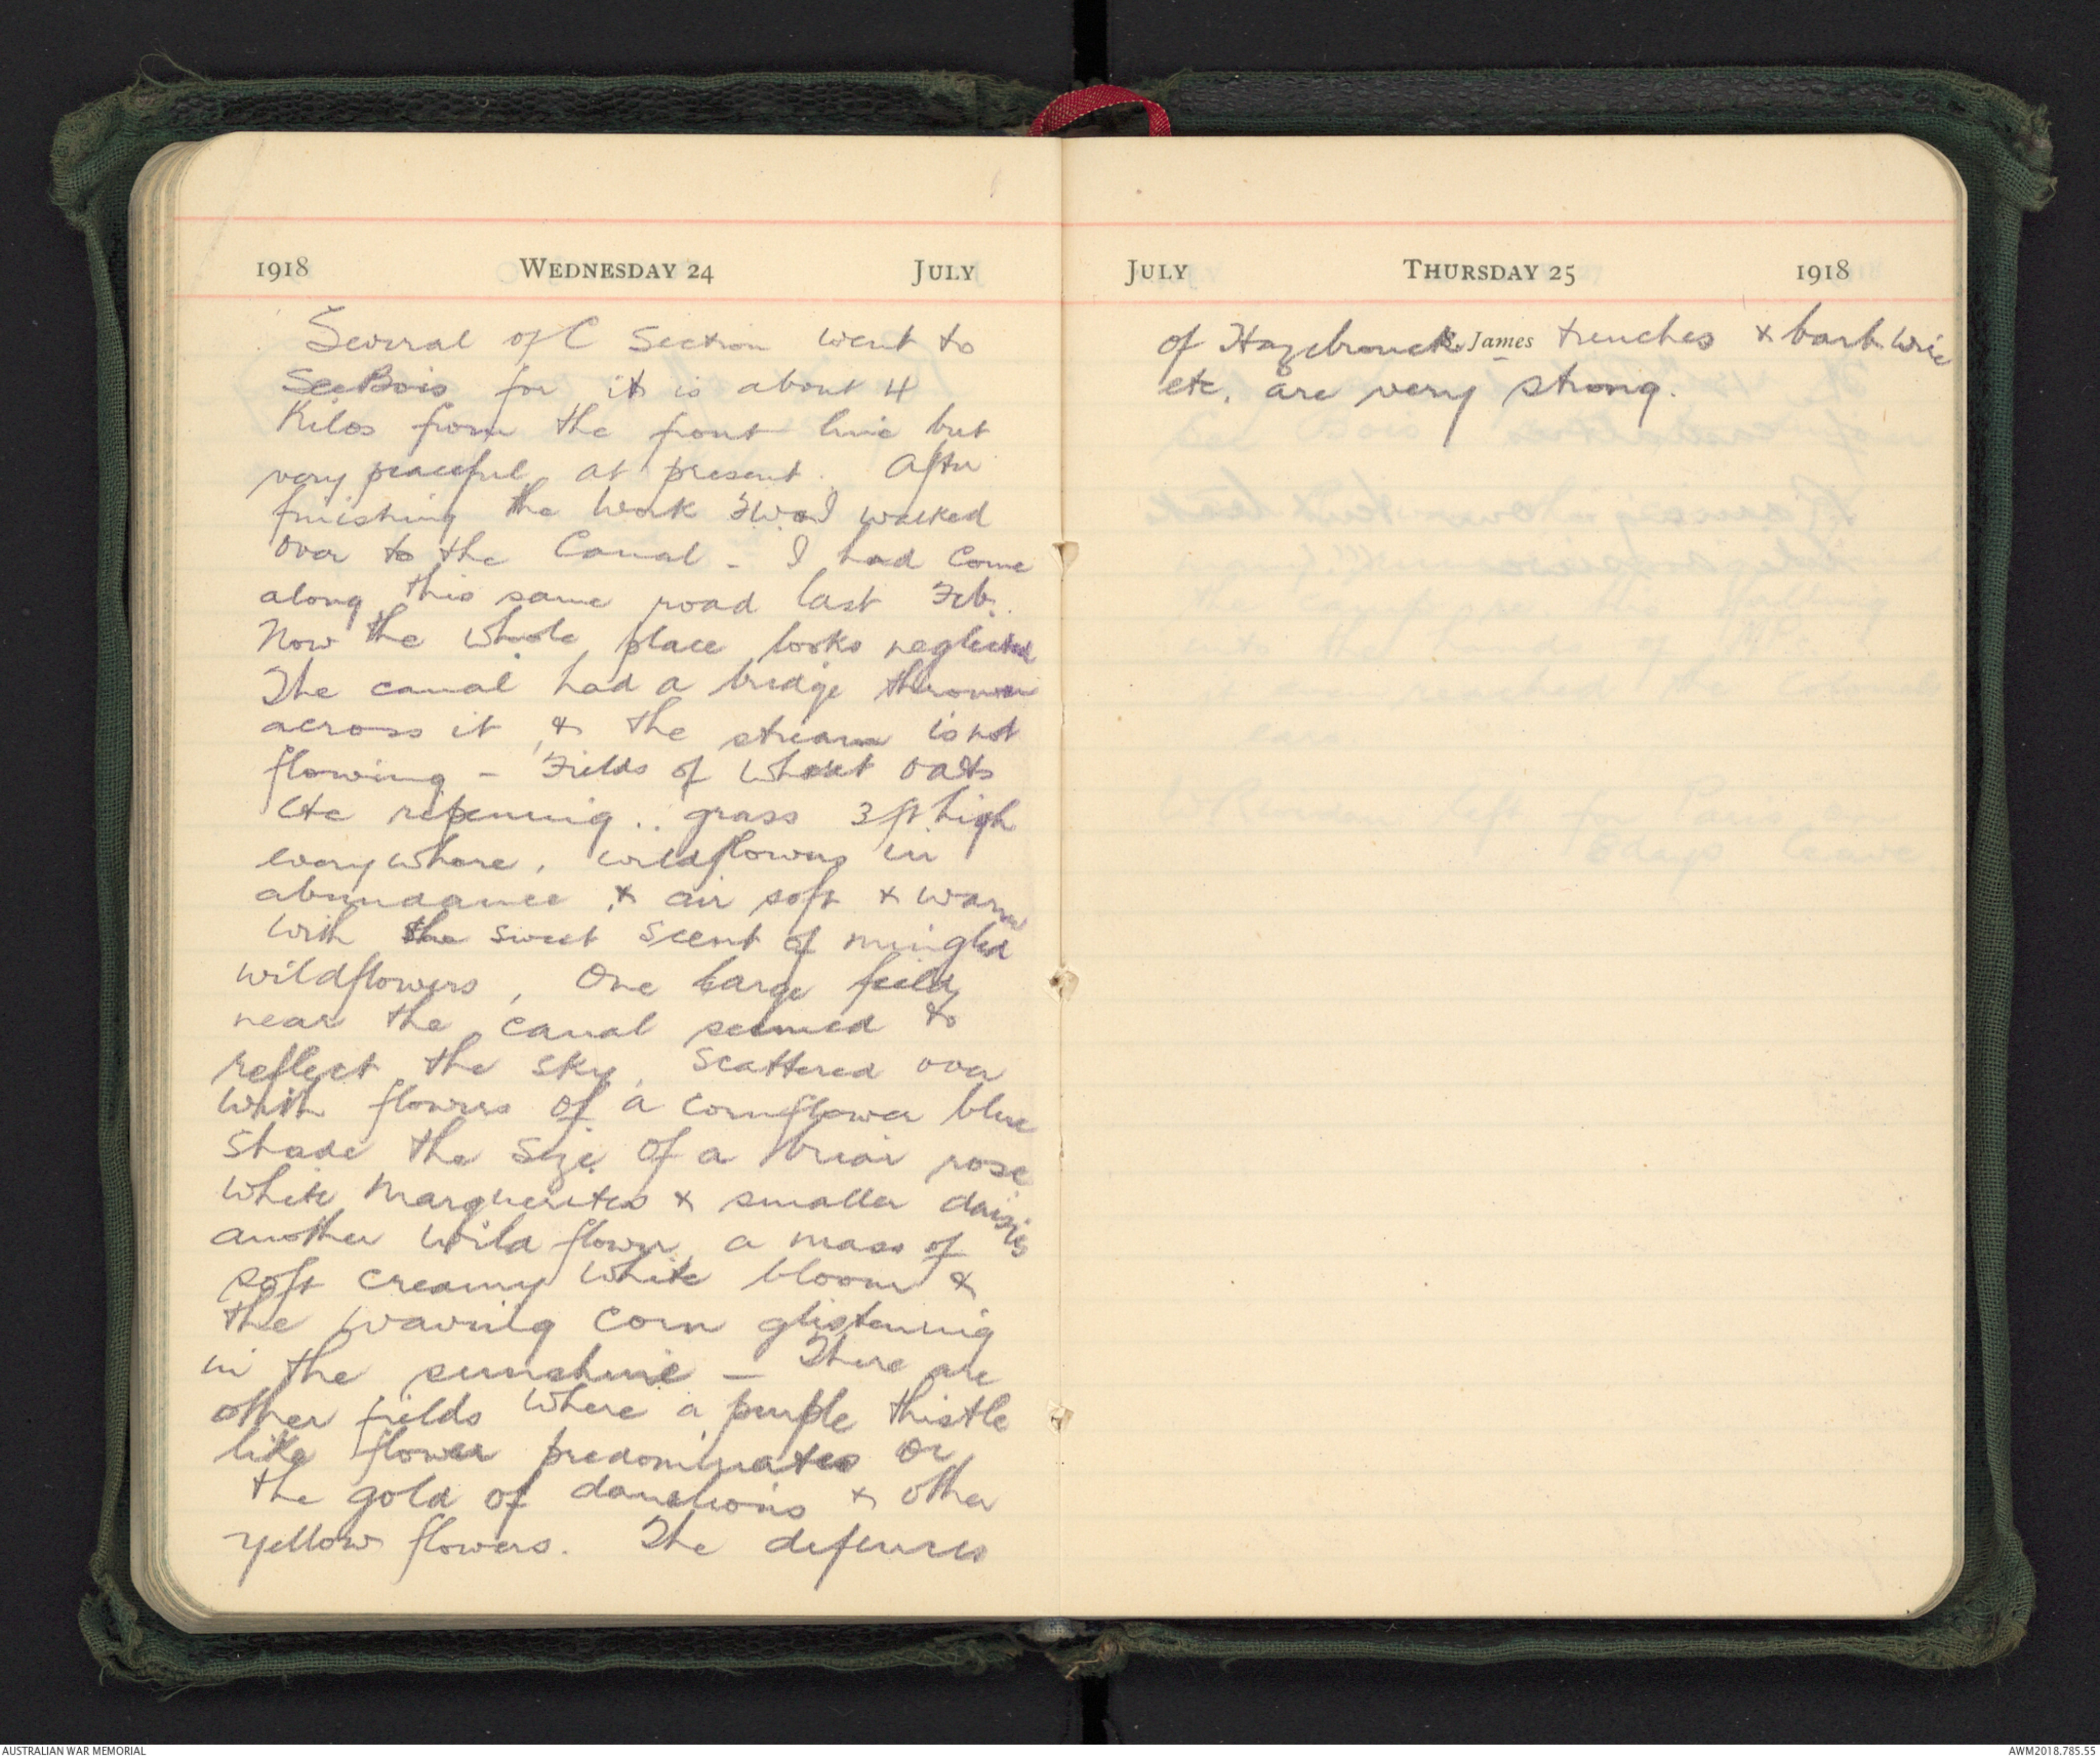 1918 WEDNESDAY 24 JULY
Several of C Section went to
SecBois for it is about 4
Kilos from the front line but
very peaceful at present. After
finishing the work FW & I walked
over to the Canal - I had come
along this same road last Feb.
Now the whole place looks neglected
The canal had a bridge thrown
across it & the stream is not
flowing - Fields of wheat oats
etc ripening .. grass 3 ft high
everywhere, wildflowers in
abundance & air soft & warm
with the sweet scent of mingled
wildflowers, One large field
near the canal seemed to
reflect the sky, scattered over
with flowers of a cornflower blue
shade the size of a briar rose
white Marguerites & smaller daisies
another wild flower, a mass of
soft creamy white bloom &
the waving corn glistening
in the sunshine - There are
other fields where a purple thistle
like flower predominates or
the gold of dandelions & other
yellow flowers. The defences
JULY THURSDAY 25 1918
of Hazebrouck S. James trenches & barb wire
etc. are very strong.
AUSTRALIAN WAR MEMORIAL
AWM2018.785.55